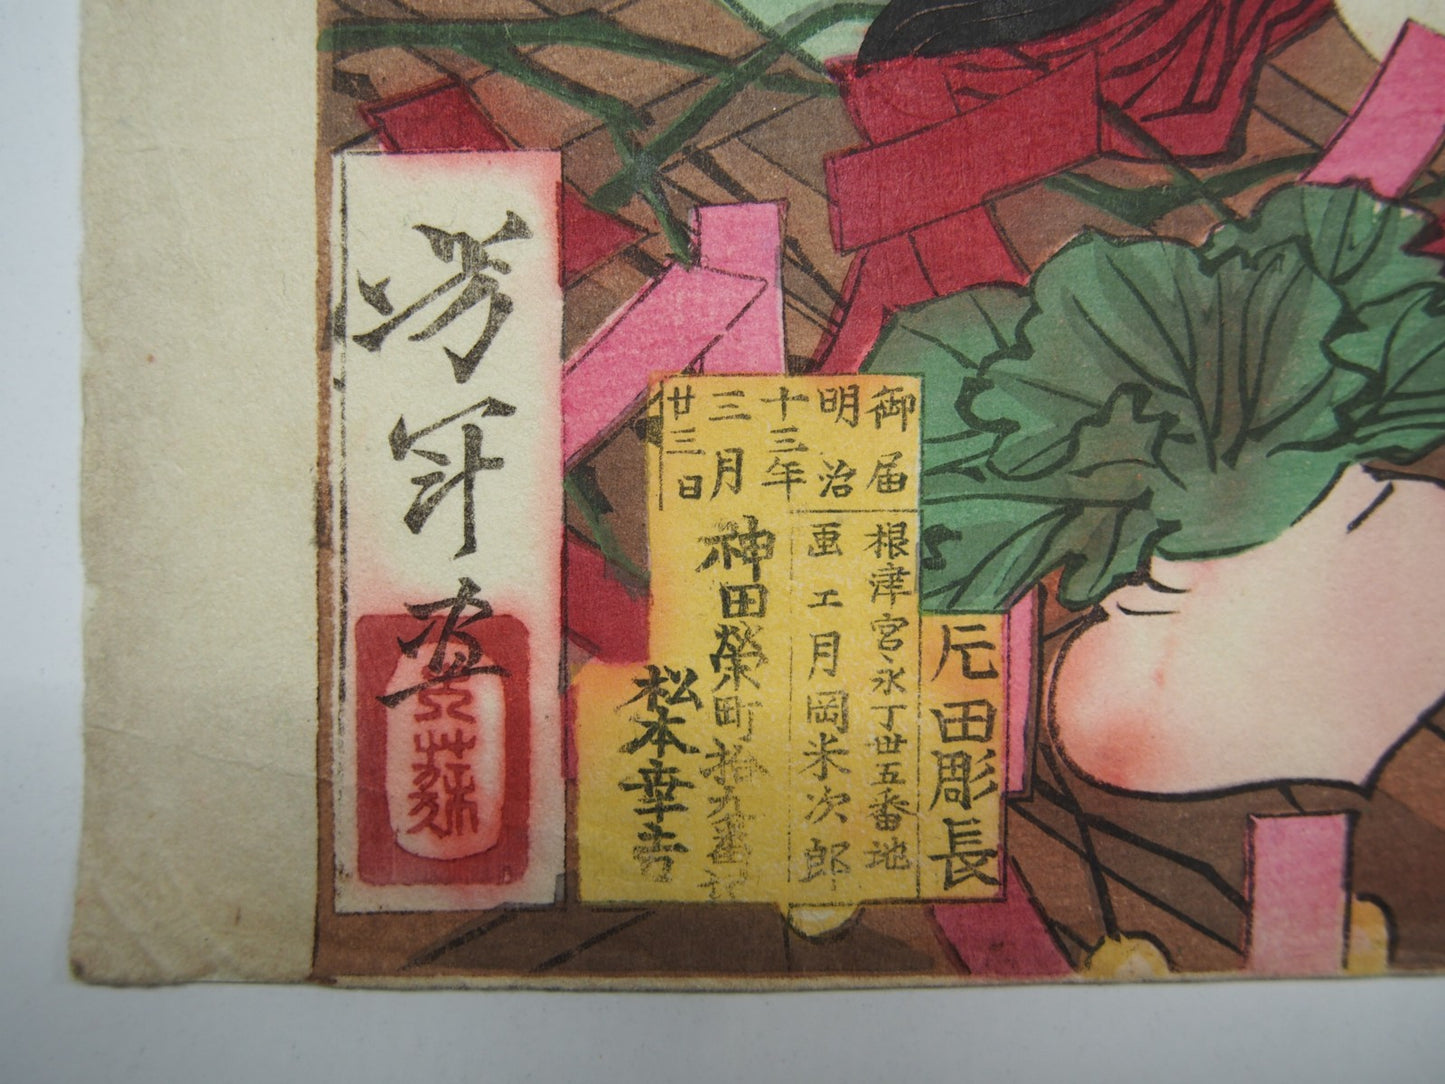 御届
明治
十三年
三月
廿三日
根津宮永丁丗五番地
画工月岡米次郎
神田榮町拾九番地
松本幸吉
卮田彫長
芳年画